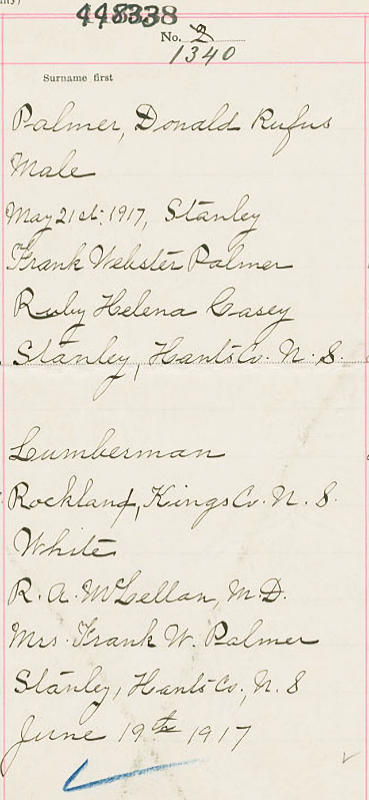 448338
No. 2
1340
Surname first
Palmer, Donald Rufus
Male
May 21st, 1917, Stanley
Frank Webster Palmer
Ruby Helena Casey
Stanley, Hants Co. N. S.
Lumberman
Rockland, Kings Co. N. S.
White
R. A. McLellan, M.D.
Mrs. Frank W. Palmer
Stanley, Hants Co., N. S
June 19th 1917